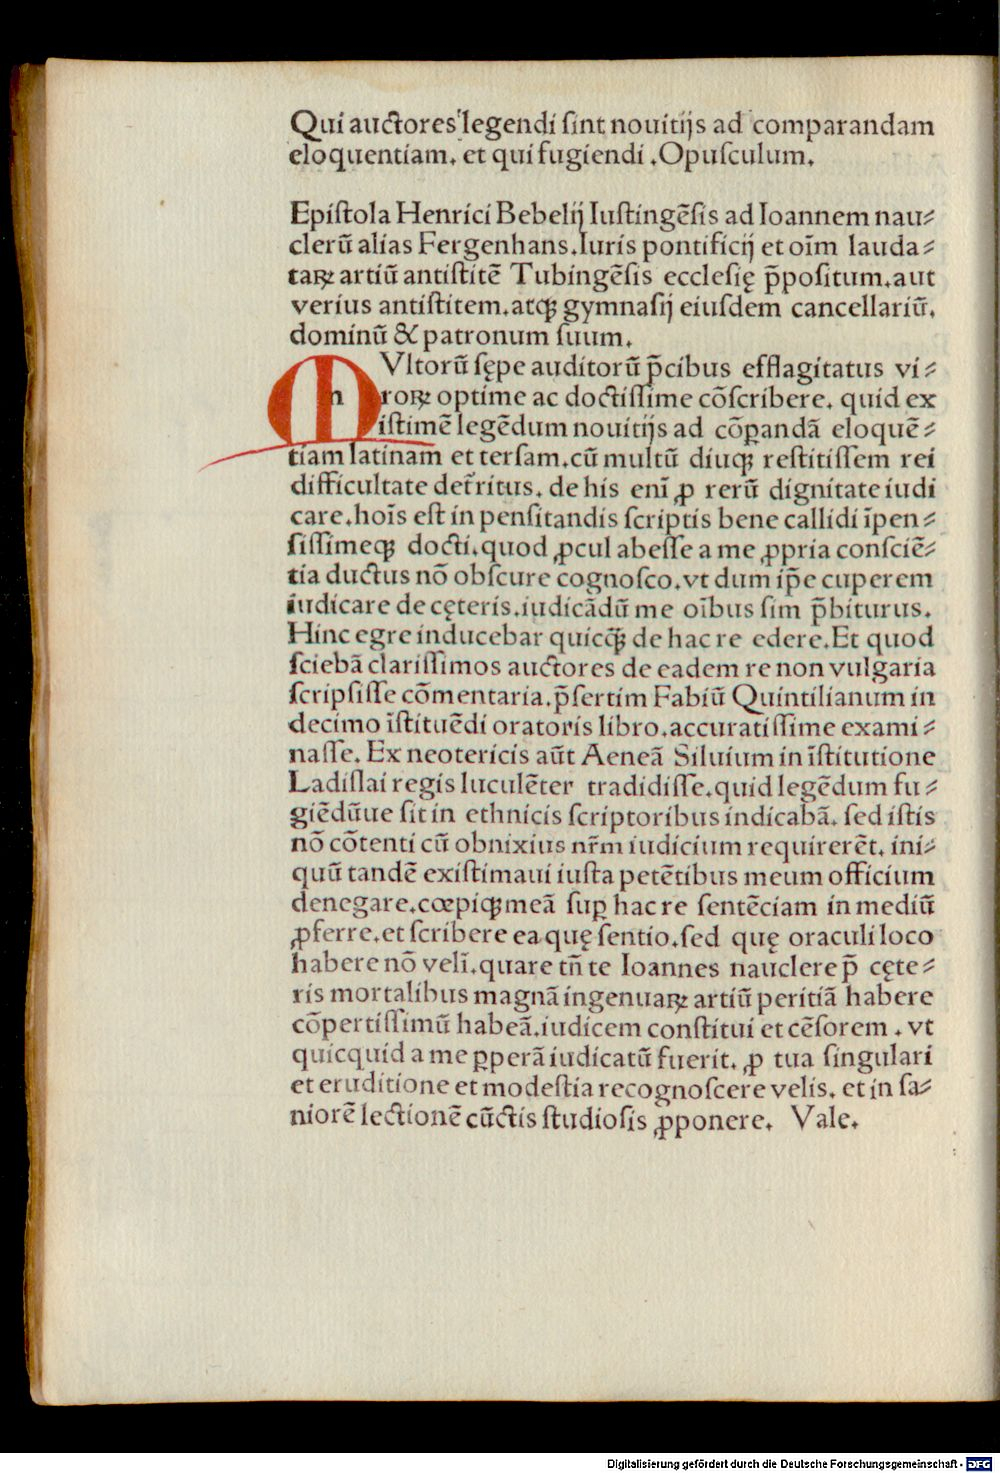 Qui auctores legendi ſint nouitijs ad comparandam
eloquentiam. et qui fugiendi .Opuſculum.
Epiſtola Henrici Bebelij Iuſtingēſis ad Ioannem nau⸗
clerū alias Fergenhans.Iuris pontificij et oīm lauda⸗
taꝝ artiū antiſtitē Tubingēſis eccleſię p̄poſitum.aut
verius antiſtitem.atqꝫ gymnaſij eiuſdem cancellariū.
dominū & patronum ſuum.
MVltorū ſępe auditorū p̄cibus efflagitatus vi⸗
roꝝ optime ac doctiſſime cōſcribere. quid ex
iſtimē legēdum nouitijs ad cōꝑandā eloquē⸗
tiam latinam et terſam.cū multū diuqꝫ reſtitiſſem rei
difficultate det̄ritus. de his enī ꝓ rerū dignitate iudi
care.hoīs eſt in penſitandis ſcriptis bene callidi īpen⸗
ſiſſimeqꝫ docti.quod ꝓcul abeſſe a me ꝓpria conſciē⸗
tia ductus nō obſcure cognoſco.vt dum ip̄e cuperem
iudicare de cęteris.iudicādū me oībus ſim p̄biturus.
Hinc egre inducebar quicq̄ꝫ de hac re edere.Et quod
ſciebā clariſſimos auctores de eadem re non vulgaria
ſcripſiſſe cōmentaria.p̄ſertim Fabiū Quintilianum in
decimo īſtituēdi oratoris libro.accuratiſſime exami⸗
naſſe. Ex neotericis aūt Aeneā Siluium in īſtitutione
Ladiſlai regis luculēter tradidiſſe.quid legēdum fu⸗
giēdūue ſit in ethnicis ſcriptoribus indicabā. ſed iſtis
nō cōtenti cū obnixius nr̄m iudicium requirerēt. ini⸗
quū tandē exiſtimaui iuſta petētibus meum officium
denegare.cœpiqꝫ meā ſuꝑ hac re ſentēciam in mediū
ꝓferre.et ſcribere ea quę ſentio.ſed quę oraculi loco
habere nō velī.quare tn̄ te Ioannes nauclere p̄ cęte⸗
ris mortalibus magnā ingenuaꝝ artiū peritiā habere
cōpertiſſimū habeā.iudicem conſtitui et cēſorem . vt
quicquid a me ꝑperā iudicatū fuerit. ꝓ tua ſingulari
et eruditione et modeſtia recognoſcere velis. et in ſa⸗
niorē lectionē cūctis ſtudioſis ꝓponere. Vale.
Digitalisierung gefördert durch die Deutsche Forschungsgemeinschaft - DFG